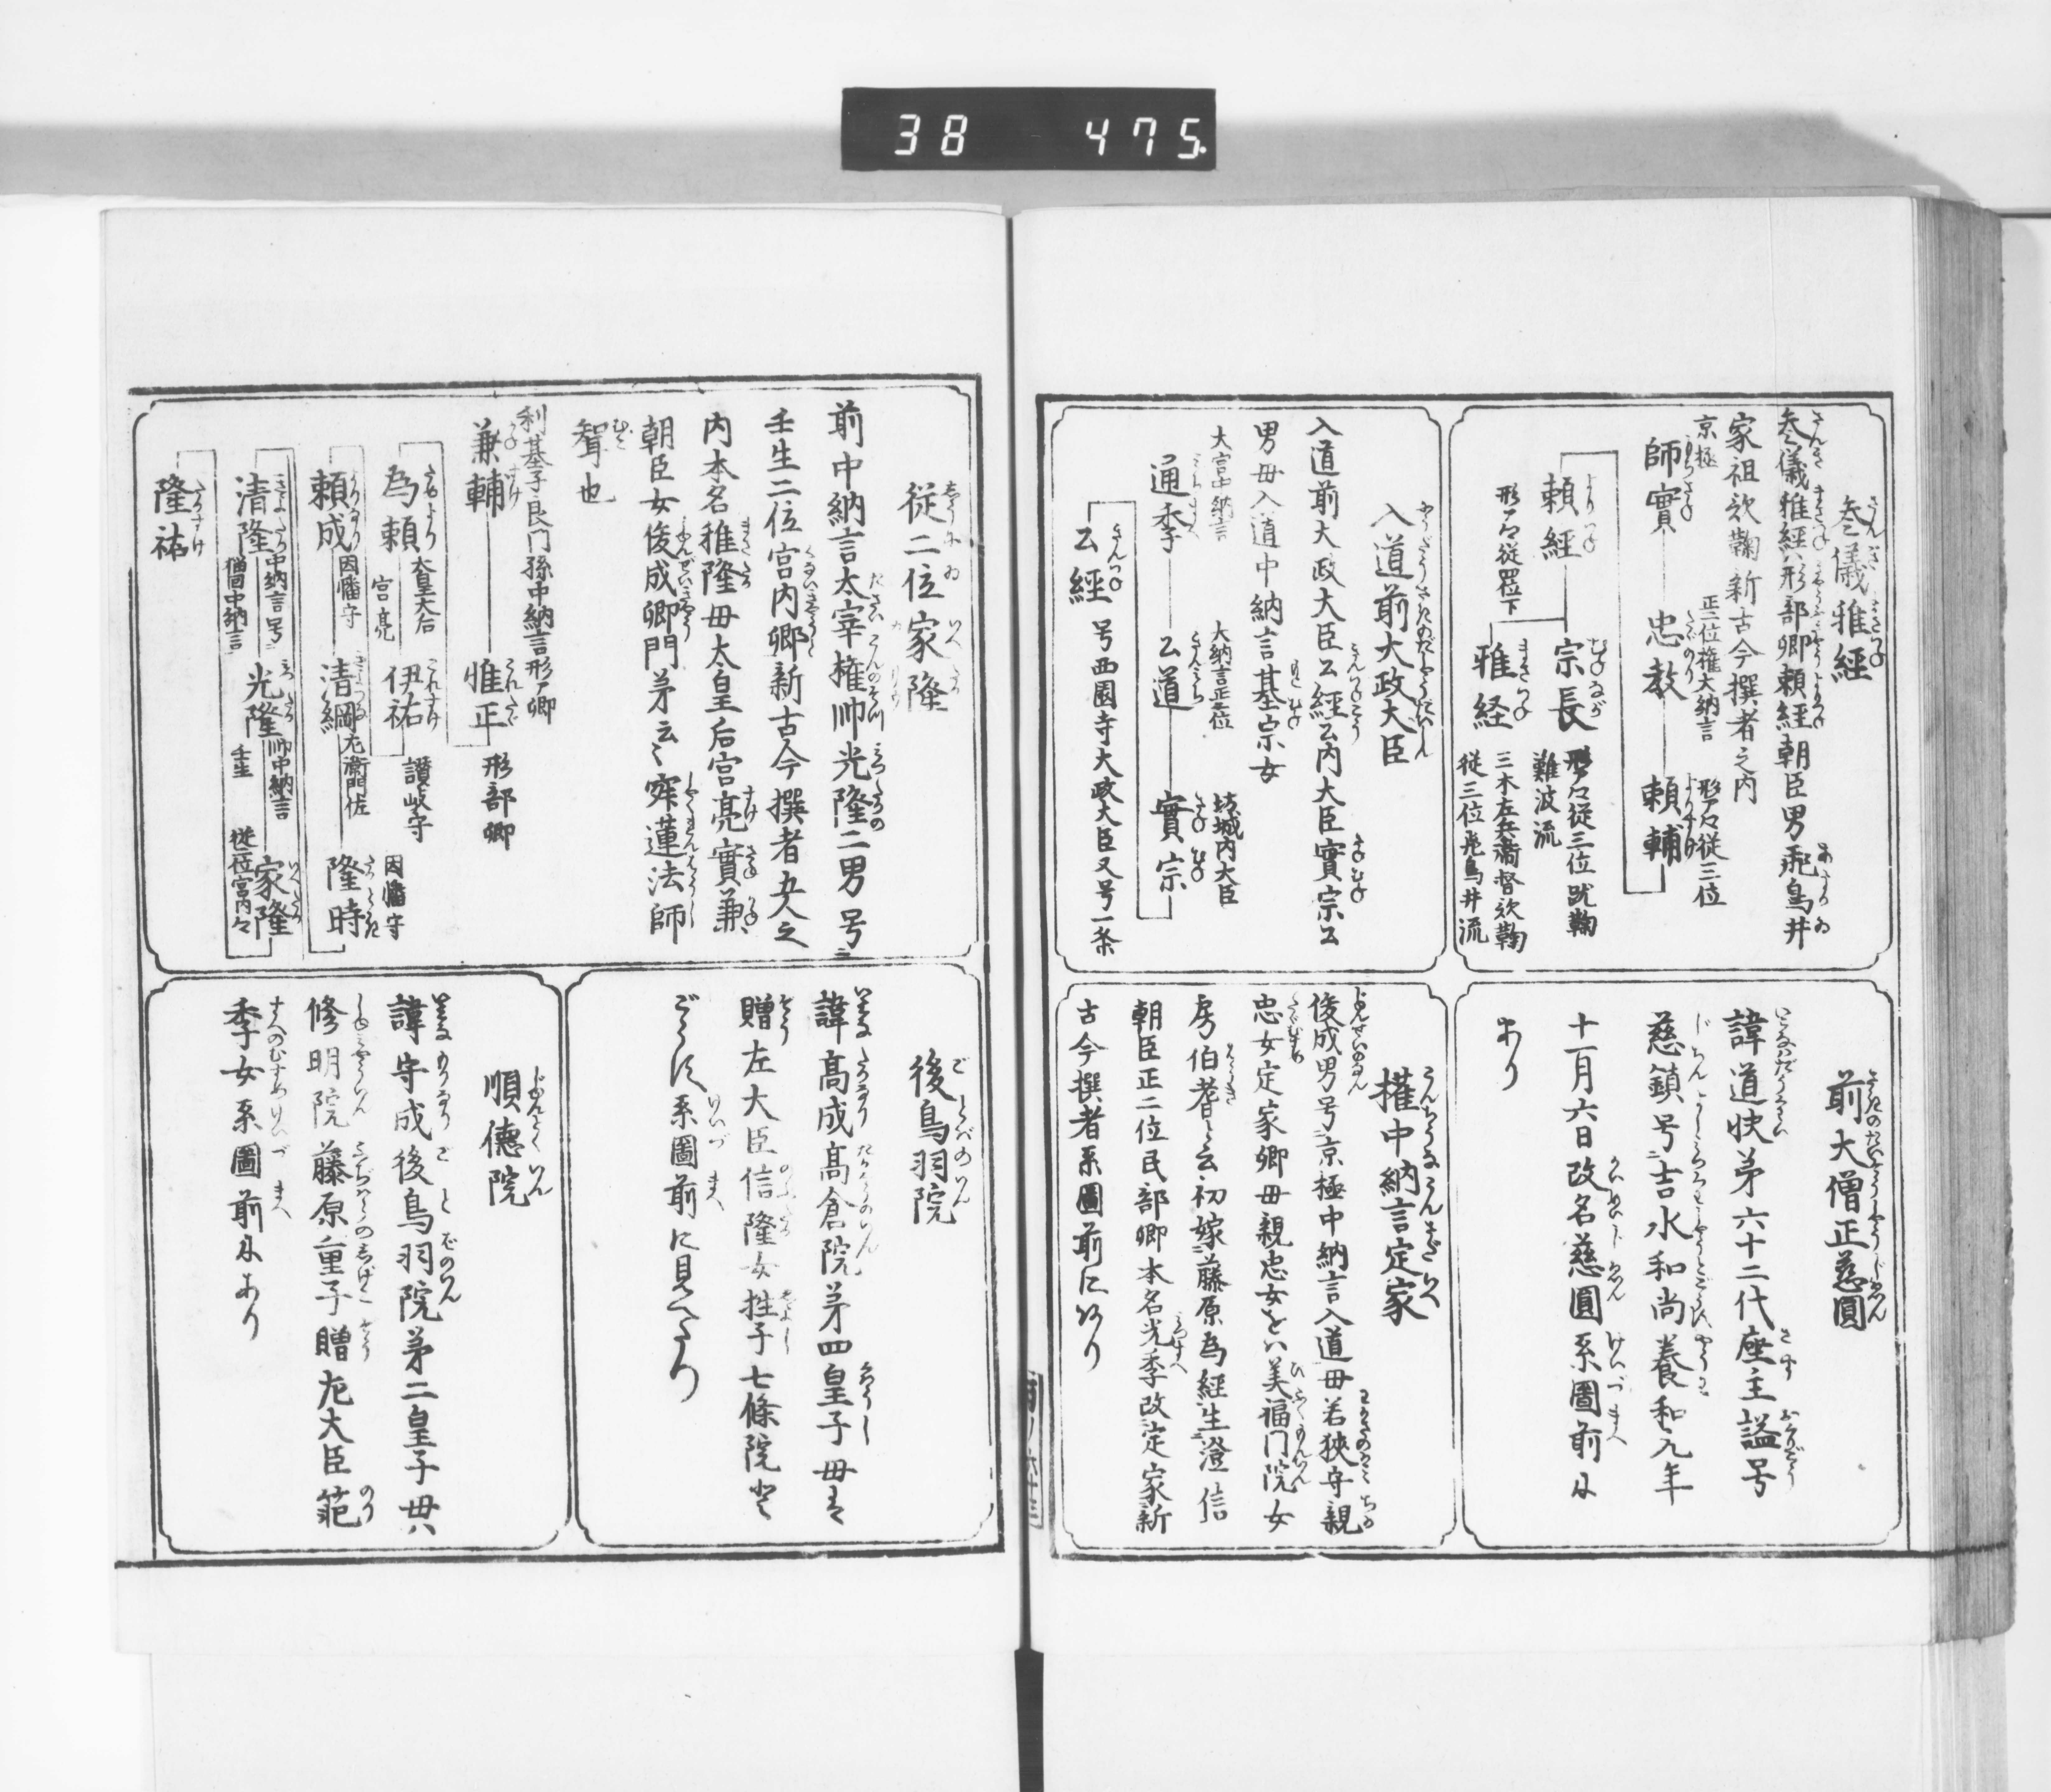 38 475
参儀雅經
参儀雅經ハ形部卿頼經朝臣男飛鳥井
家祖次鞠新古今撰者之内
京極
師實
忠教
正二位権大納言
頼輔
形ア々従三位
頼經
形ア々従四位下
宗長
形ア々従三位蹴鞠
難波流
雅経
三木左兵衛督次鞠
従三位飛鳥井流
入道前大政大臣
入道前大政大臣公經公内大臣實宗公
男母入道中納言基宗女
大宮中納言
通季
公道
大納言正二位
實宗
坊城内大臣
公經
号西園寺大政大臣又号一条
前大僧正慈圓
諱道快苐六十二代座主謚号
慈鎮号吉水和尚養和元年
十一月六日改名慈圓系圖前ニ
あり
権中納言定家
俊成男号京極中納言入道母若狭守親
忠女定家卿母親忠女をハ美福門院女
房伯耆と云初嫁藤原為經生澄信
朝臣正二位民部卿本名光季改定家新
古今撰者系圖前にあり
従二位家隆
前中納言太宰権帥光隆二男号ニ
壬生二位宮内卿新古今撰者五人之
内本名雅隆母太皇后宮亮實兼
朝臣女俊成卿門苐云々寂蓮法師
聟也
利基子良門孫中納言形ア卿
兼輔
惟正
形部卿
為頼
太皇大后
宮亮
伊祐
讃岐守
頼成
因幡守
清綱
左衛門佐
隆時
因幡守
清隆
中納言号
猫田中納言
光隆
帥中納言
壬生
家隆
従二位宮内々
隆祐
後鳥羽院
諱髙成髙倉院苐四皇子母は
贈左大臣信隆女殖子七條院と
ごうす系圖前に見へたり
順德院
諱守成後鳥羽院苐二皇子母ハ
修明院藤原重子贈左大臣範
季女系圖前にあり